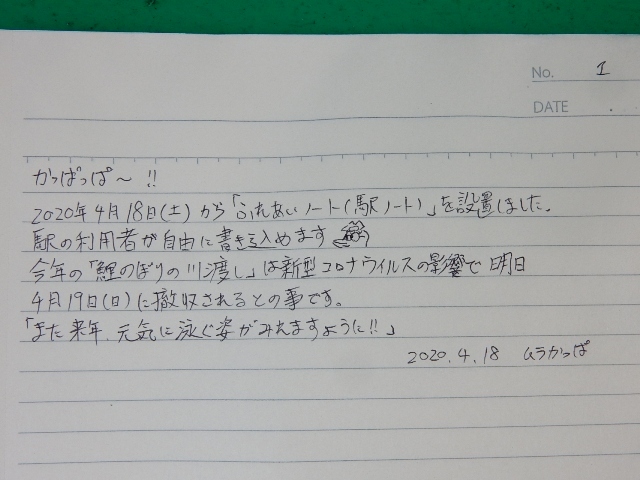 No. 1
DATE .
かっぱっぱ〜 !!
2020年4月18日(土)から「ふれあいノート(駅ノート)」を設置しました。
駅の利用者が自由に書き込めます
今年の「鯉のぼりの川渡し」は新型コロナウイルスの影響で明日
4月19日(日)に撤収されるとの事です。
「また来年、元気に泳ぐ姿がみえますように!!」
2020.4.18 ムラかっぱ